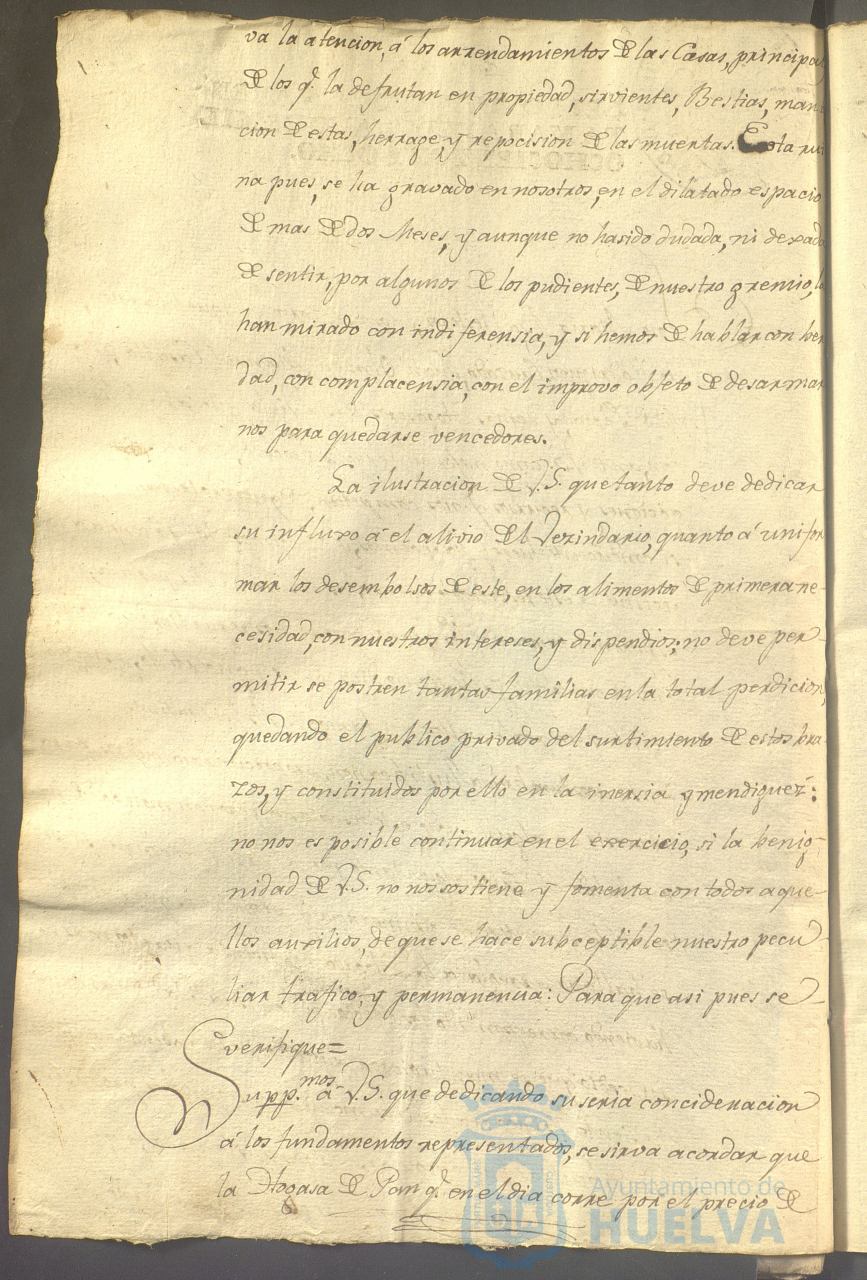 va la atencion, á los arrendamientos de las Casas, principa
de los q.e la desfrutan en propiedad, sirvientes, Bestias, man
cion de estas, herrage, y repocision de las muertas. Esta rui
na pues, se ha gravado en nosotros, en el dilatado espacio
de mas de dos Meses, y aunque no hasido dudada, ni dexad
de sentir, por algunos de los pudientes, de nuestro gremio, l
han mirado con indiferensia, y si hemos de hablar con ber
dad, con complacensia, con el improvo objeto de desarmar
nos para quedarse vencedores.
La ilustracion de V.S. que tanto deve dedicar
su influxo á el alivio del Vezindario, quanto á unifor
mar los desembolsos de este, en los alimentos de primera ne-
cesidad, con nuestros intereses, y dispendios; no deve per-
mitir se postren tantas familias en la total perdicion,
quedando el publico privado del surtimiento de estos bra
zos, y constituidos por ello en la inersia y mendiguez:
no nos es posible continuar en el exercicio, si la benig-
nidad de V.S. no nos sostiene y fomenta con todos aque-
llos auxilios, de que se hace subceptible nuestro pecu-
liar trafico, y permanencia: Para que asi pues se
verifique=
Supp.mos á V.S. que dedicando su seria concideracion
á los fundamentos representados, se sirva acordar que
la Hogasa de Pan q.e en el dia corre por el precio de
Ayuntamiento de
HUELVA